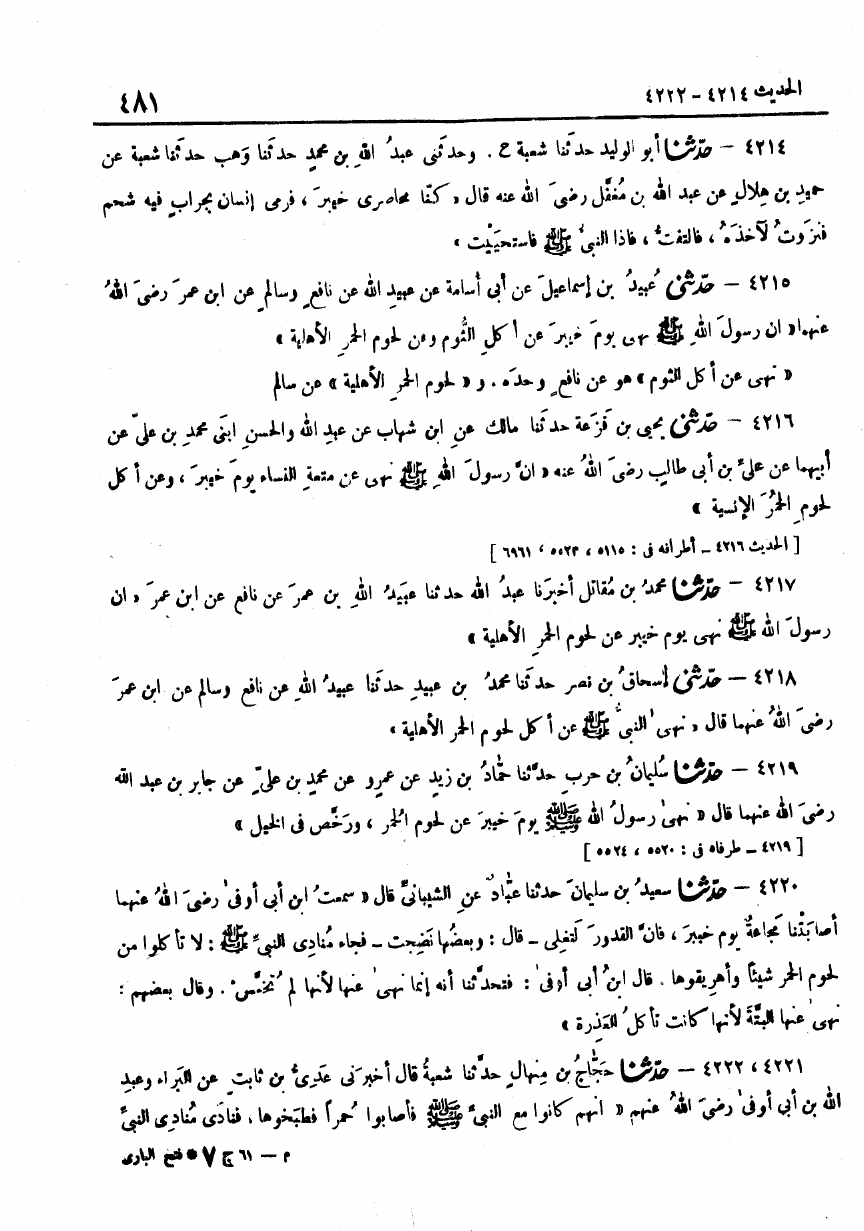 الحديث ٤٢١٤ - ٤٢٢٢
٤٨١
٤٢١٤ - حدّثنا أبو الوليد حدثنا شعبة ح . وحدثنى عبدُ اللهِ بن محمدٍ حدثنا وَهب حدثنا شعبة عن
حميدِ بن هِلالٍ عن عبد الله بن مُغفَّل رضىَ الله عنه قال « كنّا محاصرى خيبرَ ، فرمى إنسان بجرابٍ فيه شحم
فنزَوتُ لآخذَهُ ، فالتفتُّ ، فاذا النبىُّ ﷺ فاستحيَيْت »
٤٢١٥ - حدّثنى عُبيدُ بن إسماعيلَ عن أبى أسامة عن عبيدِ الله عن نافعٍ وسالمٍ عن ابن عمرَ رضىَ اللهُ
عنهما« ان رسولَ اللهِ ﷺ نهى يومَ خيبرَ عن أكلِ الثُّوم وعن لحوم الحمرِ الأهلية »
« نهى عن أكل الثوم » هو عن نافعٍ وحدَه . و « لحوم الحمرِ الأهلية » عن سالم
٤٢١٦ - حدّثنى يحيى بن قَزَعة حدثنا مالك عنِ ابن شهاب عن عبدِ الله والحسنِ ابنَى محمدِ بن علىّ عن
أبيهما عن علىِّ بن أبى طالبٍ رضىَ اللهُ عنه « انَّ رسولَ اللهِ ﷺ نهى عن متعةِ النساء يومَ خيبرَ ، وعن أكل
لحومِ الحُمُرَ الإنسية »
[ الحديث ٤٢١٦ ـ أطرافه فى : ٥١١٥ ، ٥٥٢٣ ، ٦٩٦١ ]
٤٢١٧ - حدّثنا محمدُ بن مُقاتل أخبرَنا عبدُ الله حدثنا عبَيدُ اللهِ بن عمرَ عن نافع عن ابن عمرَ « ان
رسولَ الله ﷺ نهى يوم خيبر عن لحوم الحمرِ الأهلية »
٤٢١٨ - حدّثنى إسحاقُ بن نصر حدثنا محمدُ بن عبيدٍ حدثنا عبيدُ اللهِ عن نافع وسالم عن ابن عمرَ
رضىَ اللهُ عنهما قال « نهى النبىُّ ﷺ عن أكل لحوم الحمر الأهلية »
٤٢١٩ - حدّثنا سُليمانُ بن حربٍ حدَّثنا حَّمادُ بن زيدٍ عن عمرٍو عن محمدِ بن علىّ عن جابر بن عبد الله
رضىَ الله عنهما قال « نهىٰ رسولُ الله ﷺ يومَ خيبرَ عن لحوم الُحمر ، ورَخَّص فى الخيل »
[ ٤٢١٩ ـ طرفاه فى : ٥٥٢٠ ، ٥٥٢٤ ]
٤٢٢٠ - حدّثنا سعيدُ بن سليمانَ حدثنا عبَّادٌ عنِ الشيبانىِّ قال « سمعتُ ابن أبى أوفىٰ رضىَ اللهُ عنهما
أصابَتْنا مَجاعةٌ يوم خيبرَ ، فانَّ القدورَ لَتغلِى ـ قال : وبعضُها نَضِجت ـ فجاء مُنادِى النبىِّ ﷺ : لا تأكلوا من
لحوم الحمر شيئاً وأهرِيقوها . قال ابنُ أبى أوفىٰ : فتحدَّثنا أنه إنما نهىٰ عنها لأنها لم تُخمَّسْ . وقال بعضهم :
نهىٰ عنها البتَّةَ لأنها كانت تأكلُ العَذِرة »
٤٢٢١ ، ٤٢٢٢ - حدّثنا حَجَّاجُ بن مِنهالٍ حدَّثنا شعبةُ قال أخبرَنى عَدِىُّ بن ثابتٍ عن البَراء وعبدِ
الله بن أبى أوفىٰ رضىَ اللهُ عنهم « انهم كانوا مع النبىِّ ﷺ فأصابوا ُحمراً فطبَخوها ، فنادَى مُنادِى النبىِّ
م — ٦١ ج ٧ * فتح البارى